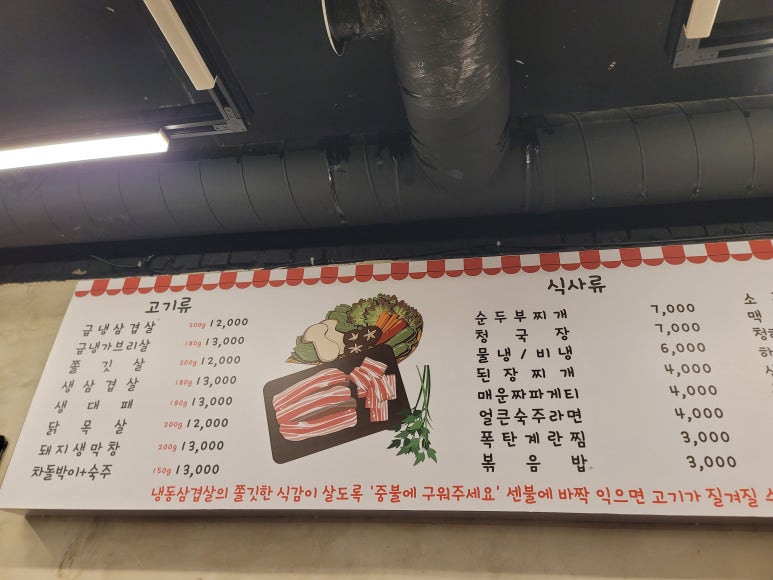 고기류
급냉삼겹살 200g 12,000
급냉가브리살 180g 13,000
쫄깃살 200g 12,000
생삼겹살 180g 13,000
생대패 180g 13,000
닭목살 200g 12,000
돼지생막창 200g 13,000
차돌박이+숙주 150g 13,000
식사류
순두부찌개 7,000
청국장 7,000
물냉/비냉 6,000
된장찌개 4,000
매운짜파게티 4,000
얼큰숙주라면 4,000
폭탄계란찜 3,000
볶음밥 3,000
소
맥
청하
하
냉동삼겹살의 쫄깃한 식감이 살도록 '중불에 구워주세요' 센불에 바짝 익으면 고기가 질겨질